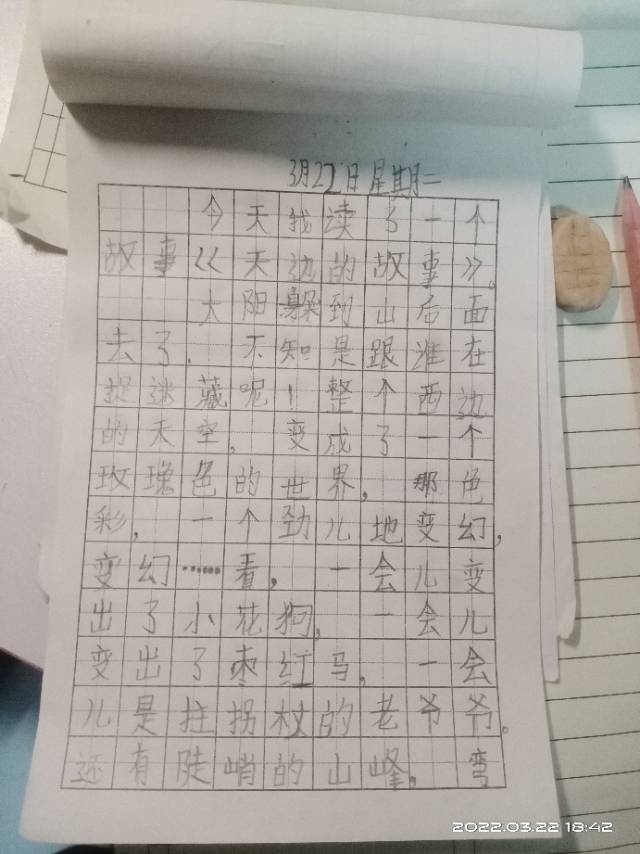 3月22日星期二
今天我读了一个
故事《天边的故事》。
太阳躲到山后面
去了，不知是跟谁在
捉迷藏呢！整个西边
的天空，变成了一个
玫瑰色的世界，那色
彩，一个劲儿地变幻，
变幻……看，一会儿变
出了小花狗，一会儿
变出了枣红马，一会
儿是拄拐杖的老爷爷。
还有陡峭的山峰，弯
2022.03.22 18:42